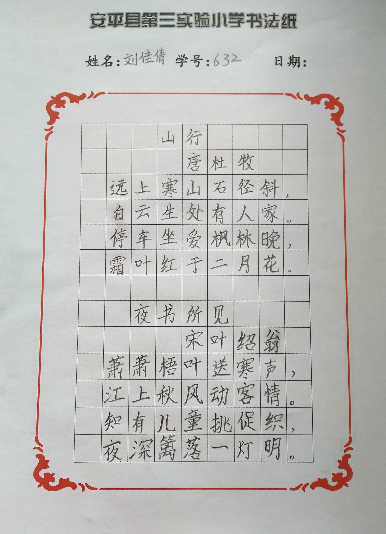 安平县第三实验小学书法纸
姓名:刘佳倩 学号:632 日期:
山行
唐 杜牧
远上寒山石径斜,
白云生处有人家。
停车坐爱枫林晚,
霜叶红于二月花。
夜书所见
宋 叶绍翁
萧萧梧叶送寒声,
江上秋风动客情。
知有儿童挑促织,
夜深篱落一灯明。